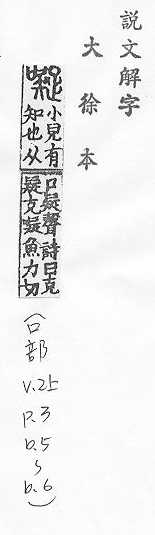 說文解字
大徐本
㘈小兒有
知也从
口疑聲詩曰克
岐克㘈魚力切
(口部 v.2上 p.3 b.5~b.6)